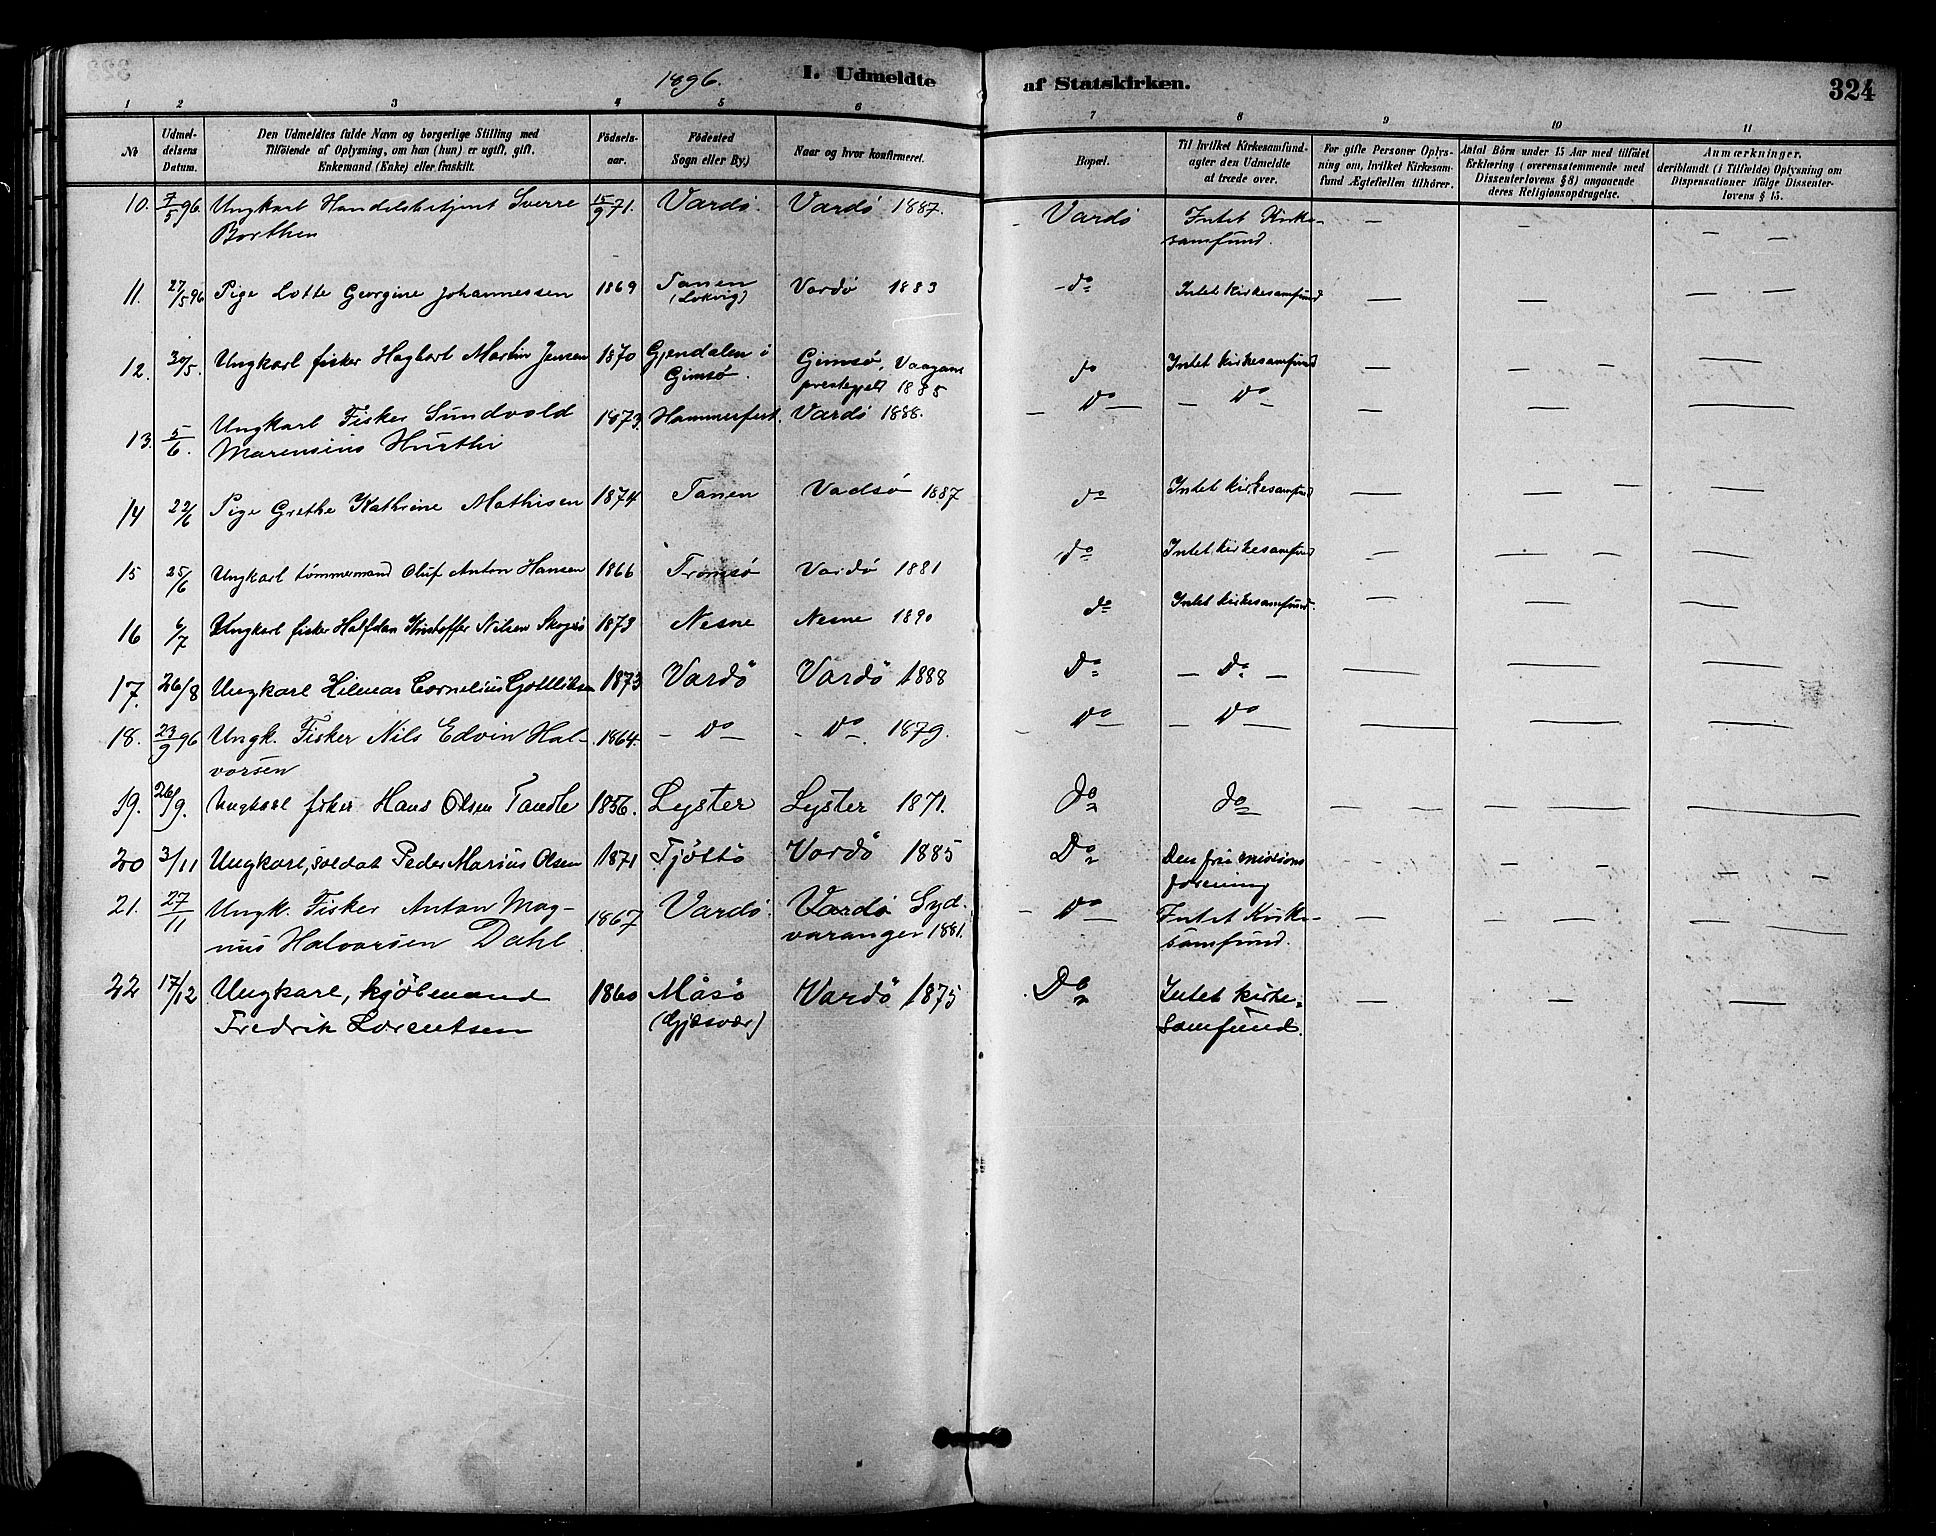 1896. I. Udmeldte af Statskirken. 324
1 2 3 4 5 6 7 8 9 10 11
No
Udmel-
delsens
Datum.
Den Udmeldtes fulde Navn og borgerlige Stilling med
Tilföiende af Oplysning, om han (hun) er ugift, gift,
Enkemand (Enke) eller fraskilt.
Födsels-
aar.
Födested
(Sogn eller By.)
Naar og hvor konfirmeret.
Bopæl.
Til hvilket Kirkesamfund-
agter den Udmeldte
at træde over.
For gifte Personer Oplys-
ning om, hvilket Kirkesam-
fund Ægtefællen tilhörer.
Antal Börn under 15 Aar med tilföiet
Erklæring (overensstemmende med
Dissenterlovens § 8) angaaende
deres Religionsopdragelse.
Anmærkninger,
deriblandt (i Tilfælde) Oplysning om
Dispensationer ifölge Dissenter-
lovens § 15.
10. 7/5 96. Ungkarl Handelsbetjent Sverre 15/9 71. Vardö. Vardö 1887. Vardö Intet Kirke- — — — —
Borthen samfund.
11. 27/5 96 Pige Lotte Georgine Johannessen 1869 Tanen Vardö 1883 do Intet Kirkesamfund — — — —
12. 30/5. Ungkarl fisker Hagbart Martin Jensen 1870 Gjendalen i Gimsö, Vaagans do Intet kirkesamfund — — — —
Gimsö. prestegjeld 1885
13. 5/6. Ungkarl Fisker Sundvold 1873. Hammerfest. Vardö 1888. — Do — — Do — — — —
Marensius
14 22/6 Pige Grethe Kathrine Mathisen 1874 Tanen Vadsö 1887 do Intet kirkesamfund — — — —
15 25/6 Ungkarl tömmermand Oluf Anton Hansen 1866 Tromsö Vardö 1881 do Intet kirkesamfund — — — —
16 6/7 Ungkarl fisker Halfdan Kristoffer Nilsen 1873 Nesne Nesne 1890 do Intet kirkesamfund. — — —
17. 26/8 Ungkarl Hilmar Cornelius Gottliebsen 1873 Vardö Vardö 1888 Do — Do — — — —
18. 23/9 96 Ungk. Fisker Nils Edvin Hal- 1864. — Do — Do 1879. Do — Do — — —
vorsen
19. 26/9. Ungkarl fisker Hans Olsen 1856. Lyster Lyster 1871. do do — — — — —
20 3/11 Ungkarl, soldat Peder Marius Olsen 1871 Tjöttö Vardö 1885 Do Den frie missions — — — — — —
forening
21. 27/11 Ungk. Fisker Anton Mag- 1867 Vardö. Vardö Syd- — Do — Intet Kirke- — — — — —
nus Halvorsen Dahl varanger 1881. samfund.
22 17/12 Ungkarl, kjöbmand 1860 Måsö Vardö 1875 Do Intet kirke- — — —
Fredrik Lorentsen (Gjæsvær) Samfund.